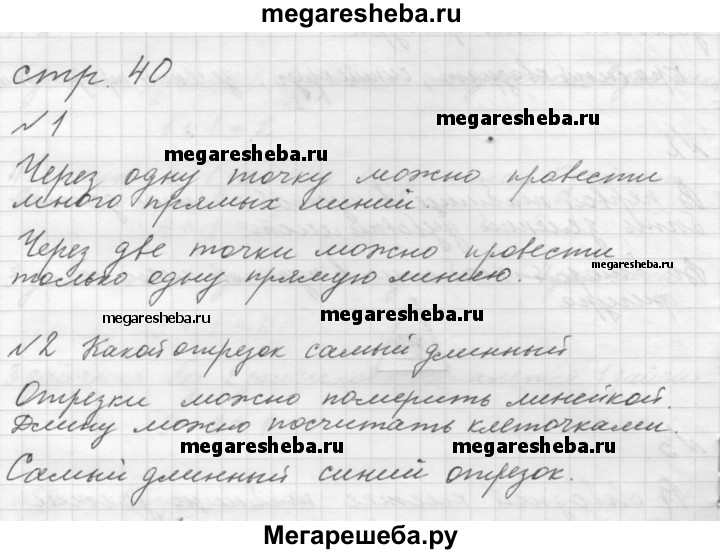 megaresheba.ru
стр. 40
№1
megaresheba.ru
megaresheba.ru
Через одну точку можно провести
много прямых линий.
Через две точки можно провести
только одну прямую линию.
megaresheba.ru
megaresheba.ru
megaresheba.ru
№2 Какой отрезок самый длинный
Отрезки можно померить линейкой.
Длину можно посчитать клеточками.
megaresheba.ru
megaresheba.ru
Самый длинный синий отрезок.
Мегарешеба.ру